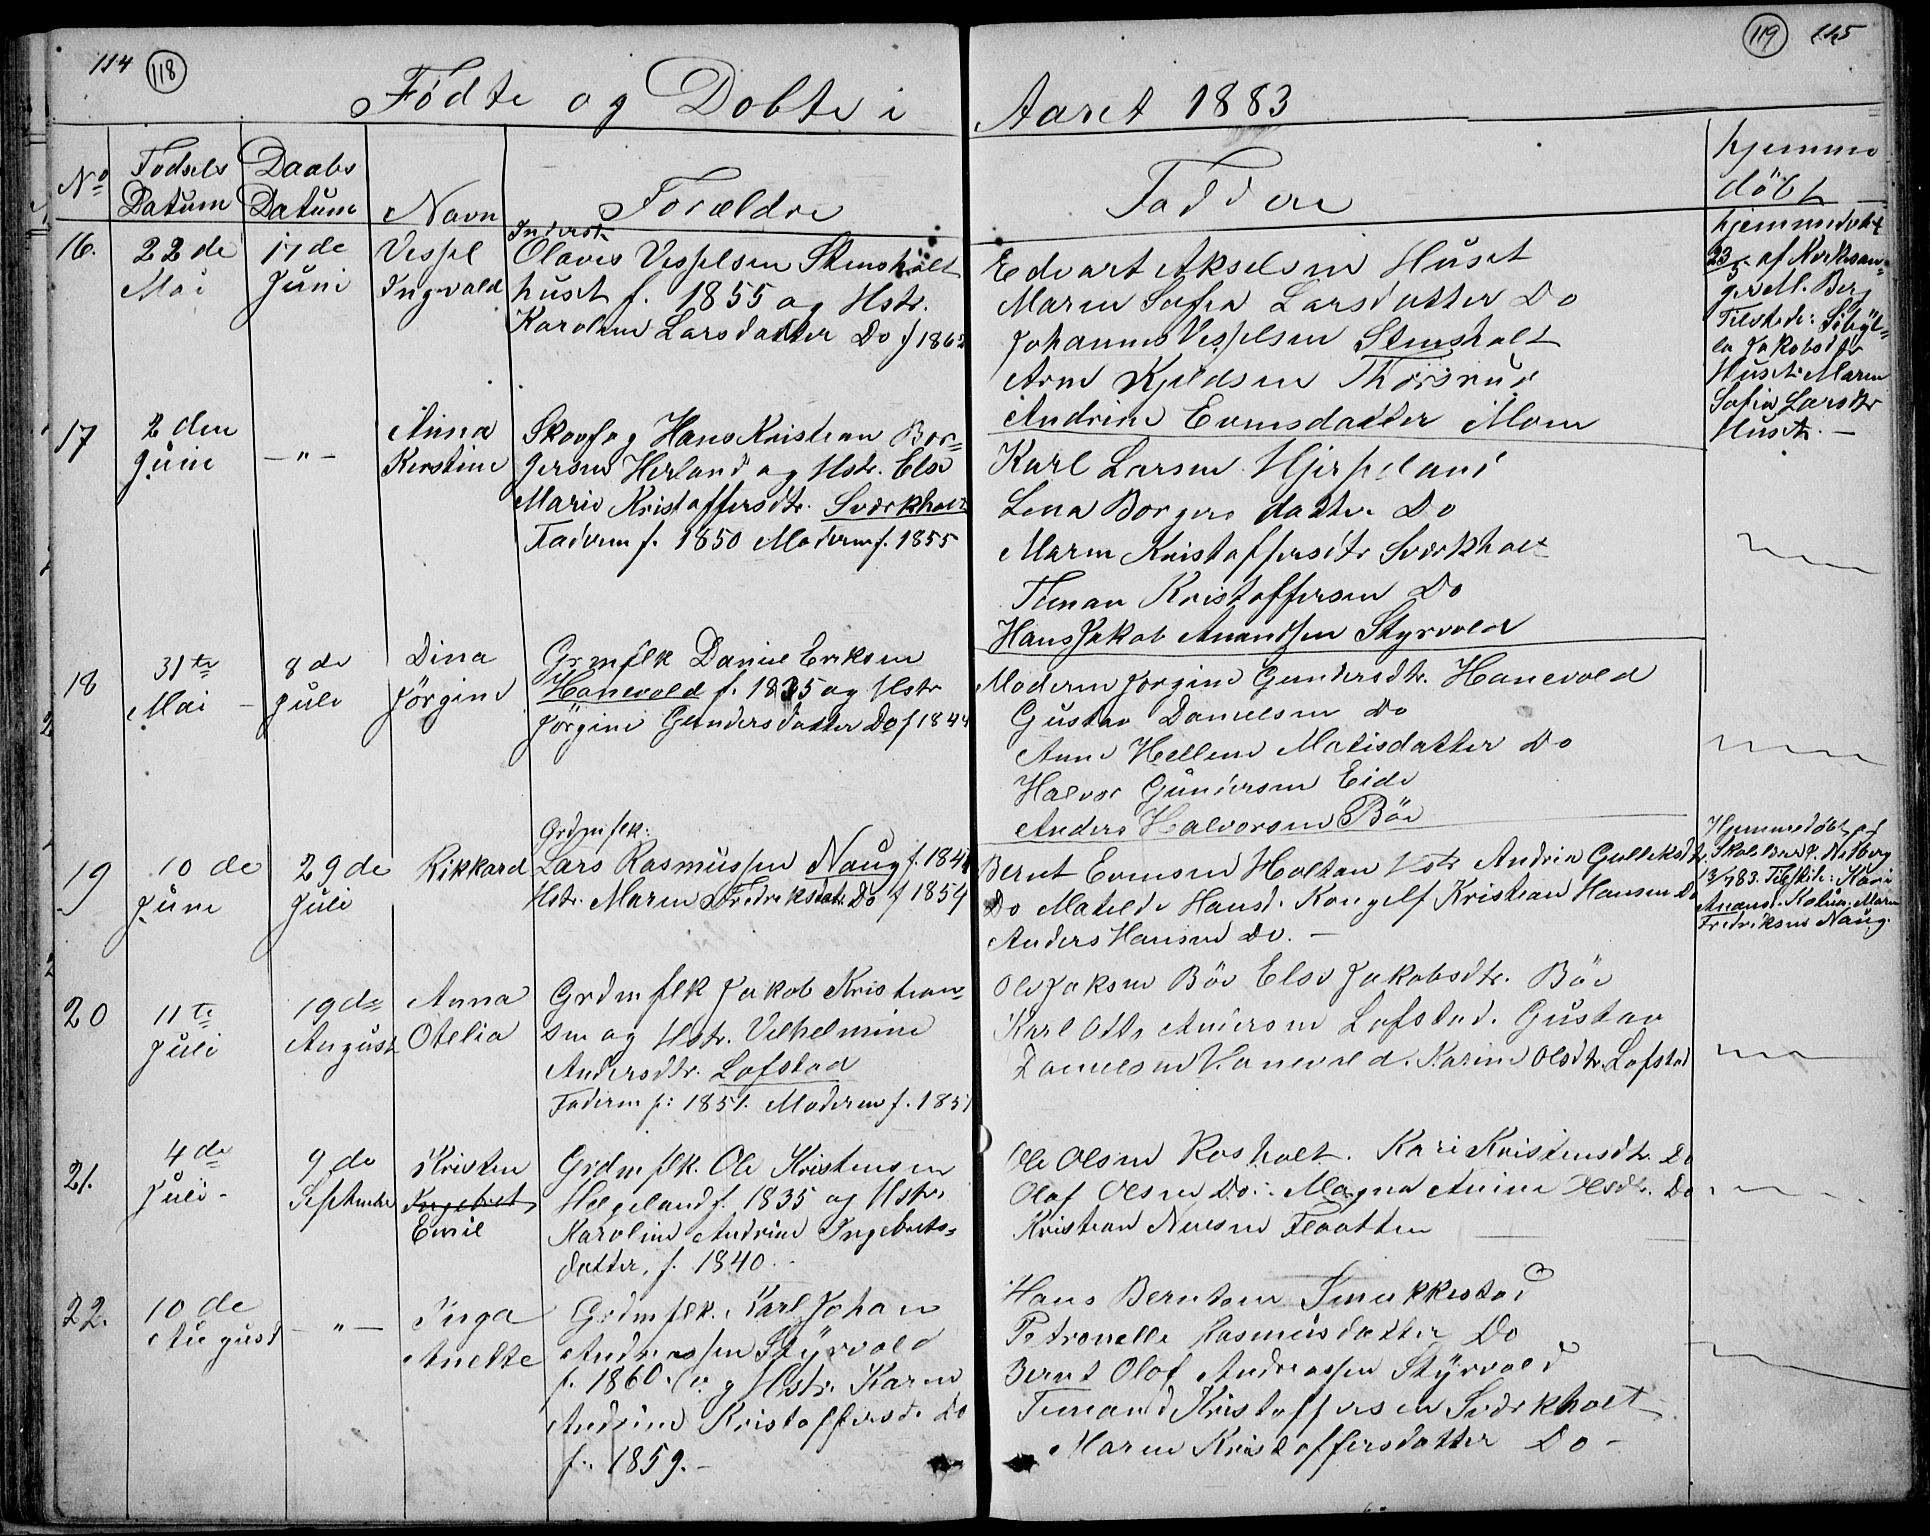 114 118
Fødte og Døbte i Aaret 1883
119 115
No Fødsels Datum Daabs Datum Navn Forældre Faddere hjemme døbt
16. 22de Mai 17de Juni Vessel Ingvald
Inderst
Olaves Vesselsen Stensholt
huset f. 1855 og Hstr.
Karoline Larsdatter Do f 1862
Edvart Akselsen Huset
Maren Sofia Larsdatter Do
Johannes Vesselsen Stensholt
Arne Kjeldsen Thorsrud
Andrine Evensdatter Moen
hjemmedøbt
23/5 af Kirkesan-
ger M. Berg
Tilstede: Sibyl-
la Jakobsdtr
Huset Maren
Sofia Larsdtr
Huset. —
17 2den Juni — " — Anna Kirstine
Skovfog Hans Kristian Bor-
gersen Herland og Hstr. Else
Marie Kristoffersdtr. Sværkholt
Faderen f. 1850 Moderen f. 1855
Karl Larsen Hjerpeland
Lena Borgersdatter Do
Maren Kristoffersdtr Sværkholt
Timan Kristoffersen Do
Hans Jakob Anundsen Styrvold
18 31te Mai — 8de Juli Dina Jörgine
Grmflk Daniel Eriksen
Hanevold f. 1835 og Hstr
Jörgine Gundersdatter Do f 1844
Moderen Jörgine Gundersdtr. Hanevold
Gustav Danielsen Do
Anne Hellene Matisdatter Do
Halvor Gundersen Eide
Anders Halvorsen Böe
19 10de Juni 29de Juli Rikkard
Grdmflk:
Lars Rasmussen Naug f. 1841
Hstr. Maren Fredriksdatr. Do f 1854
Bernt Evensen Holtan Hstr Andrea Gulleksdtr
Do Matilde Hansd. Kongelf Kristian Hansen Do
Anders Hansen Do. —
Hjemmedöbt af
Skolelærer P. Netberg
13/7 83. Tilstede: Kari
Anund. Kolun. Maren
Fredriksen Naug.
20 11te Juli 19de August Anna Otelia
Grdmflk Jakob Kristian-
sen og Hstr. Vilhelmine
Andersdtr. Lofstad
Faderen f: 1851. Moderen f. 1851
Ole Jaksen Böe Else Jakobsdtr. Böe
Karl Otto Andersen Lofstad. Gustav
Danielsen Hanevold. Karine Olsdtr. Lofstad
21. 4de Juli - 9de September Kristen Ingebret Emil
Grdmflk. Ole Kristensen
Helgeland f. 1835 og Hstr.
Karoline Andrine Ingebrets-
datter, f. 1840.
Ole Olsen Rosholt. Kari Kristensdtr. Do
Olaf Olsen Do. Magna Anine Olsdtr. Do.
Kristian Nielsen Flaatten
22. 10de August — " — Inga Anette
Grdmflk. Karl Johan
Andreassen Styrvold
f. 1860. og Hstr. Karen
Andrine Kristoffersd. Do
f. 1859. —
Hans Berntsen Smukkestad
Petronelle Rasmusdatter Do
Bernt Olof Andreassen Styrvold
Timand Kristoffersen Sværkholt
Maren Kristoffersdatter Do —